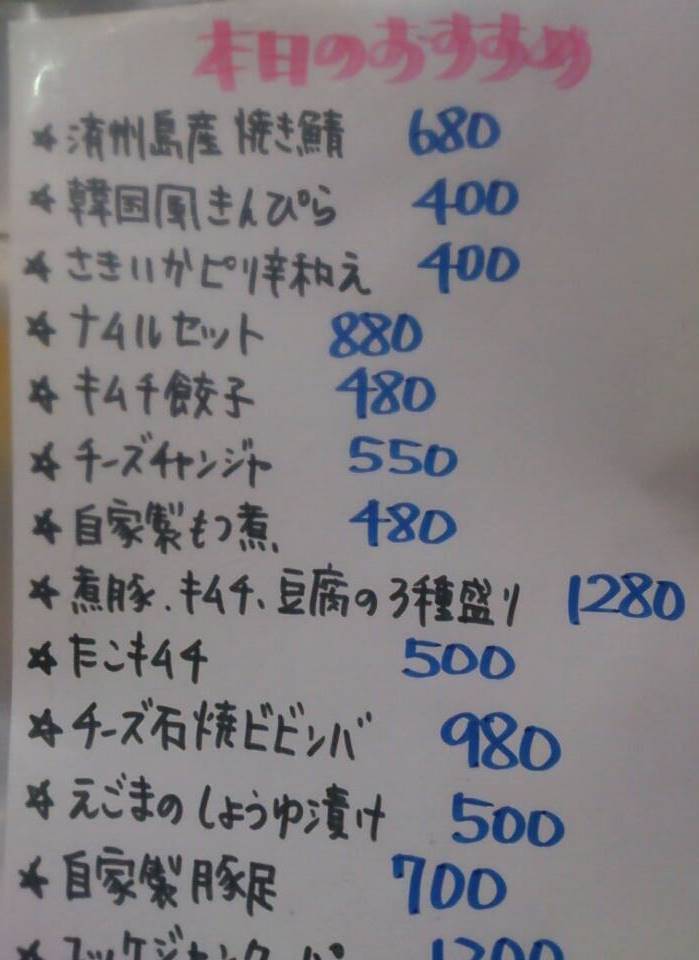 本日のおすすめ
☆済州島産 焼き鯖 680
☆韓国風きんぴら 400
☆さきいかピリ辛和え 400
☆ナムルセット 880
☆キムチ餃子 480
☆チーズチャンジャ 550
☆自家製もつ煮、 480
☆煮豚、キムチ、豆腐の3種盛り 1280
☆たこキムチ 500
☆チーズ石焼ビビンバ 980
☆えごまのしょうゆ漬け 500
☆自家製豚足 700
☆ユッケジャンクッパ 1200